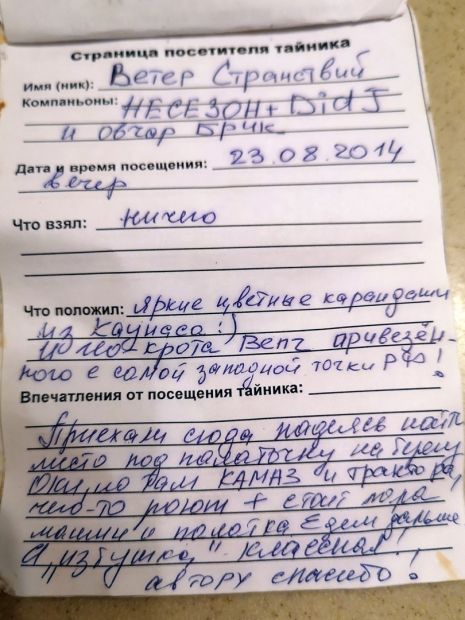 Страница посетителя тайника
Имя (ник): Ветер Странствий
Компаньоны: НЕСЕЗОН + DidJ
и овчар Брик
Дата и время посещения: 23.08.2014
вечер
Что взял: ничего
Что положил: яркие цветные карандаши
из Каунаса :)
и гео-крота Венг привезён-
ного с самой западной точки РФ!
Впечатления от посещения тайника:
Приехали сюда надеясь найти
место под палаточку на берегу
Оки, но там КАМАЗ и трактора
чего-то роют + стоит пара
машин и палатка. Едем дальше
А „избушка" - классная!,
автору спасибо!